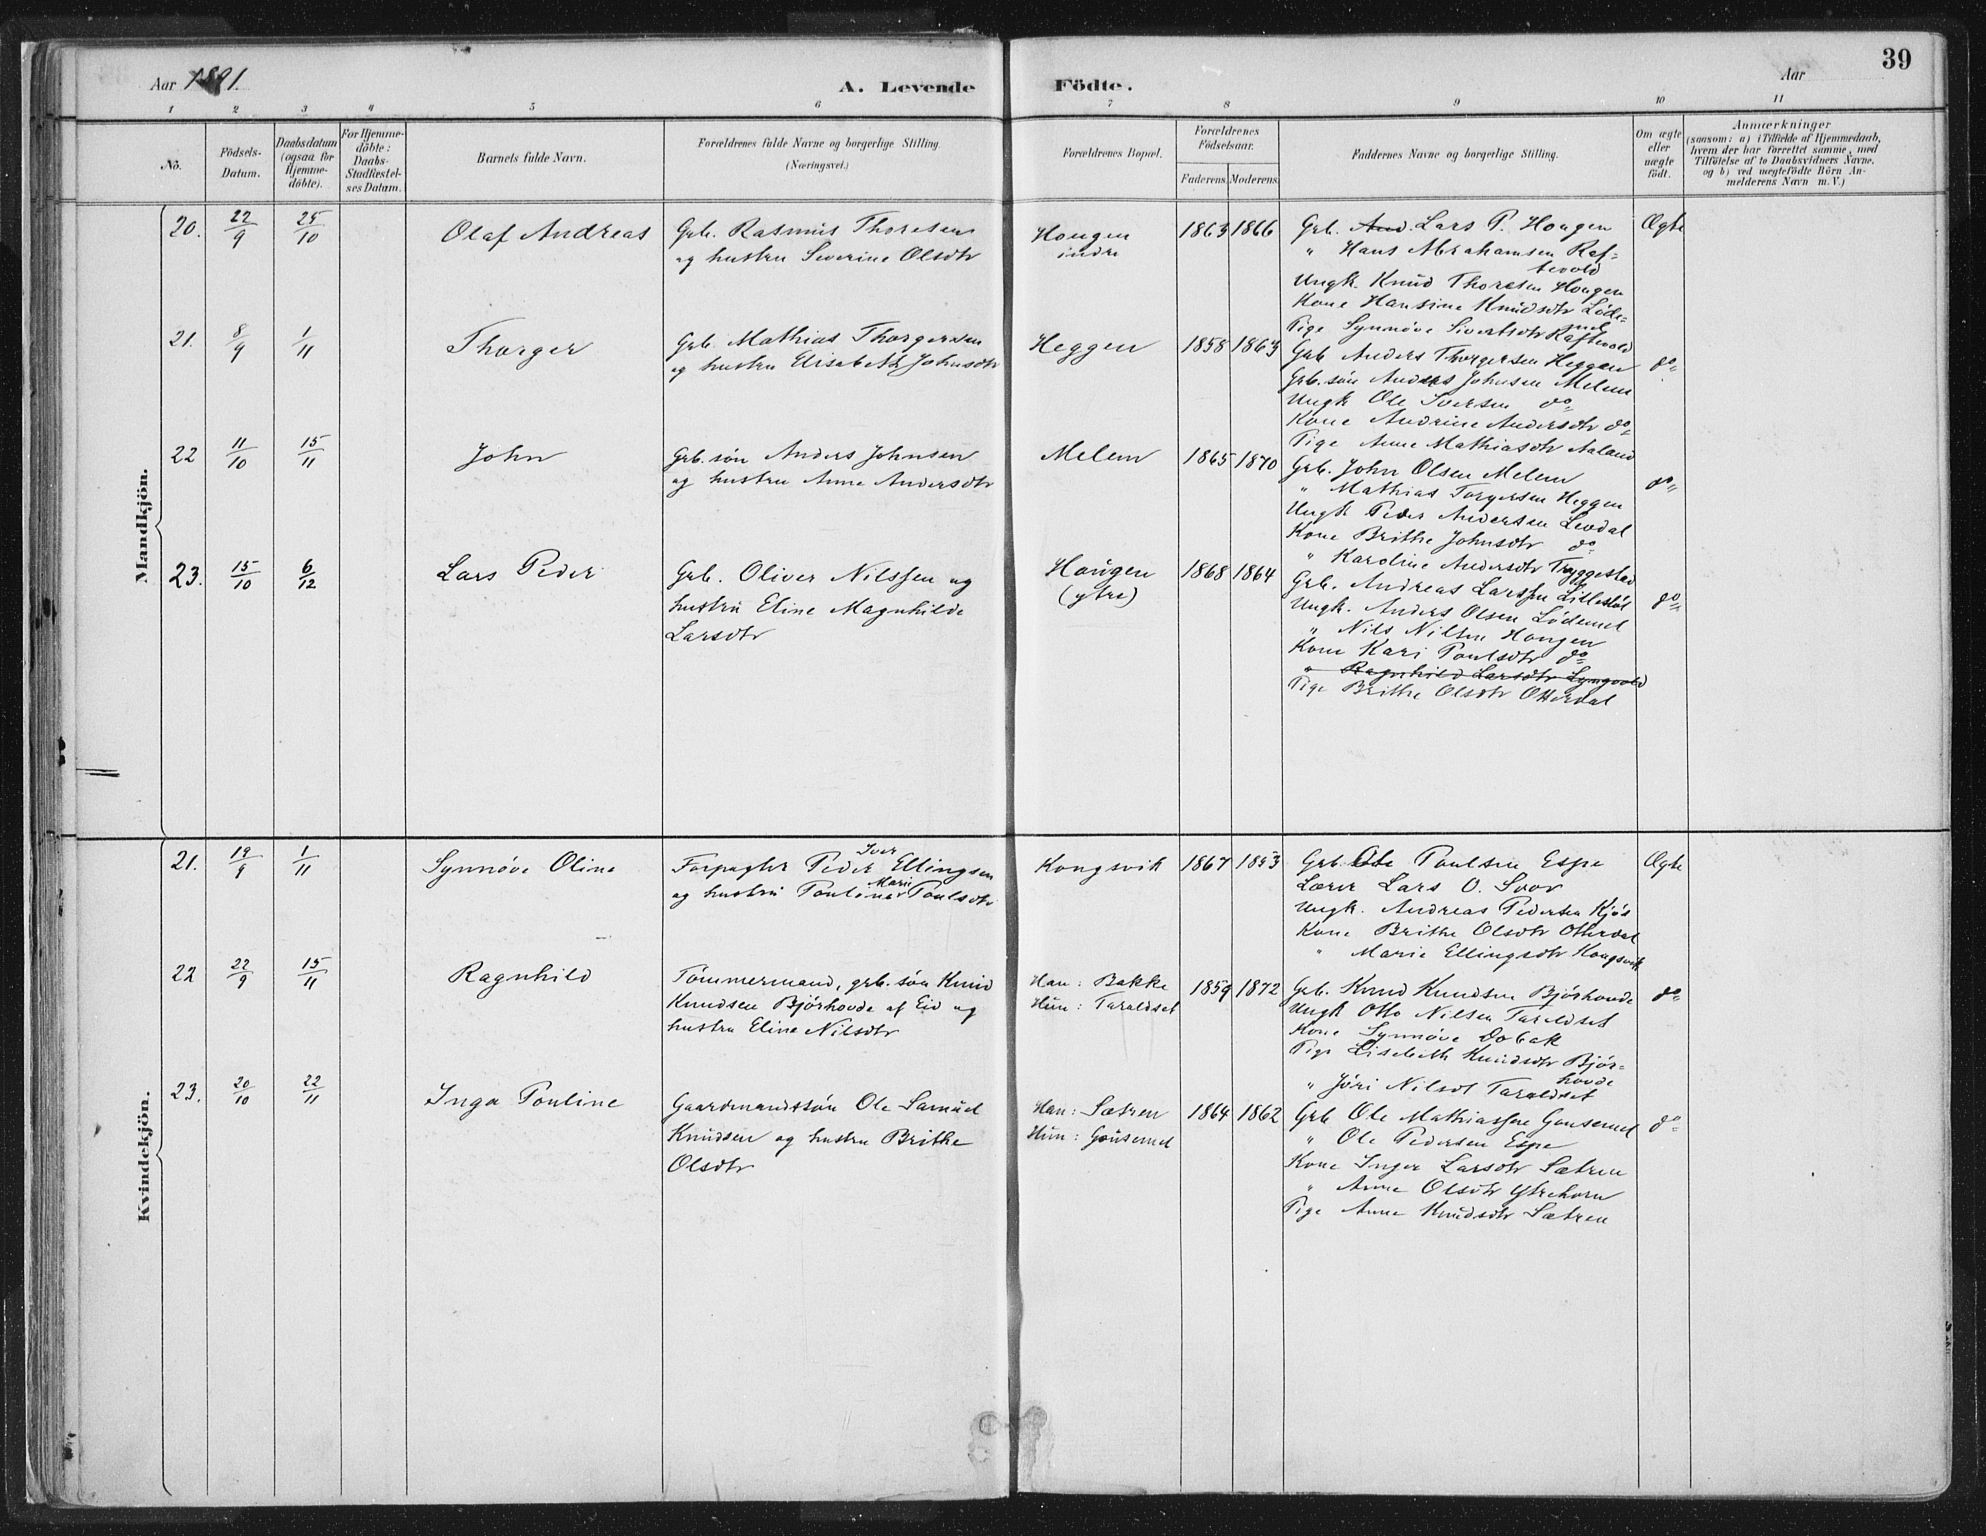 39
Aar 1891.
A. Levende
Födte.
Aar
1 2 3 4 5 6 7 8 9 10 11
No.
Födsels-
Datum.
Daabsdatum
(ogsaa for
Hjemme-
döbte).
For Hjemme-
döbte:
Daabs-
Stadfæstel-
ses Datum.
Barnets fulde Navn.
Forældrenes fulde Navne og borgerlige Stilling.
(Næringsvei.)
Forældrenes Bopæl.
Forældrenes
Födselsaar.
Faderens. Moderens.
Faddernes Navne og borgerlige Stilling.
Om ægte
eller
uægte
födt.
Anmærkninger
(saasom: a) i Tilfælde af Hjemmedaab,
hvem der har forrettet samme, med
Tilföielse af to Daabsvidners Navne,
og b) ved uægtefödte Börn An-
melderens Navn m. V.)
Mandkjön.
20. 22/9 25/10 Olaf Andreas
Grb. Rasmus Thoresen
og hustru Severine Olsdtr
Hougen
indre
1863 1866
Grb. And. Lars P. Hougen
" Hans Abrahamsen Raf-
tevold
Ungk. Knud Thoresen Hougen
Kone Hansine Knudsdtr Löde-
mel
Pige Synnöve Sivertsdtr Raftevold
Ægte
21. 8/9 1/11 Thorger
Grb. Mathias Thorgersen
og hustru Elisabeth Johnsdtr
Heggen
1858 1863
Grb Anders Thorgersen Heggen
Grb. sön Anders Johnsen Melem
Ungk Ole Iversen do
Kone Andrine Andersdtr do
Pige Anne Mathiasdtr Aaland
do
22 11/10 15/11 John
Grb. sön Anders Johnsen
og hustru Anne Andersdtr
Melem
1865 1870
Grb. John Olsen Melem
" Mathias Torgersen Heggen
Ungk Peder Andersen Levdal
Kone Brithe Johnsdtr do
" Karoline Andersdtr Tryggestad
do
23. 15/10 6/12 Lars Peder
Grb. Oliver Nilssen og
hustru Eline Magnhilde
Larsdtr
Hougen
(ytre)
1868 1864
Grb. Andreas Larssen Lillestöl
Ungk. Anders Olsen Lödemel
" Nils Nilsen Hougen
Kone Kari Poulsdtr do
" Ragnhild Larsdtr Lyngvold
Pige Brithe Olsdtr Otterdal
do
Kvindekjön.
21. 19/9 1/11 Synnöve Oline
Iver
Forpagter Peder Ellingsen
Marie
og hustru Pouline Poulsdtr
Kongsvik
1867 1853
Grb. Ole Poulsen Espe
Lærer Lars O. Svor
Ungk. Andreas Pedersen Kjös
Kone Brithe Olsdtr Otterdal
" Marie Ellingsdtr Kongsvik
Ægte
22 22/9 15/11 Ragnhild
Tömmermand, grb. sön Knud
Knudsen Bjórhovde af Eid og
hustru Eline Nilsdtr
Han: Bakke
Hun: Taraldset
1859 1872
Grb. Knud Knudsen Bjórhovde
Ungk Otto Nilsen Taraldset
Kone Synnöve Dobak
Pige Lisebeth Knudsdtr Bjór-
hovde
" Jöri Nilsdt Taraldset
do
23. 20/10 22/11 Inga Pouline
Gaardmandssön Ole Samuel
Knudsen og hustru Brithe
Olsdtr
Han: Sætren
Hun: Gausemel
1864 1862
Grb Ole Mathiassen Gausemel
" Ole Pedersen Espe
Kone Inger Larsdtr Sætren
" Anne Olsdtr Ytrehorn
Pige Anne Knudsdtr Sætren
do